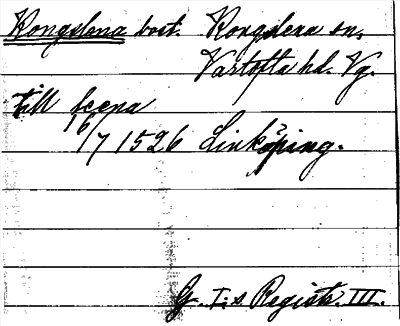 Kongslena bost. Kongslena sn,
Vartofta hd. Vg.
till scena
16/7 1526 Linköping.
G. I:s Registr. III.